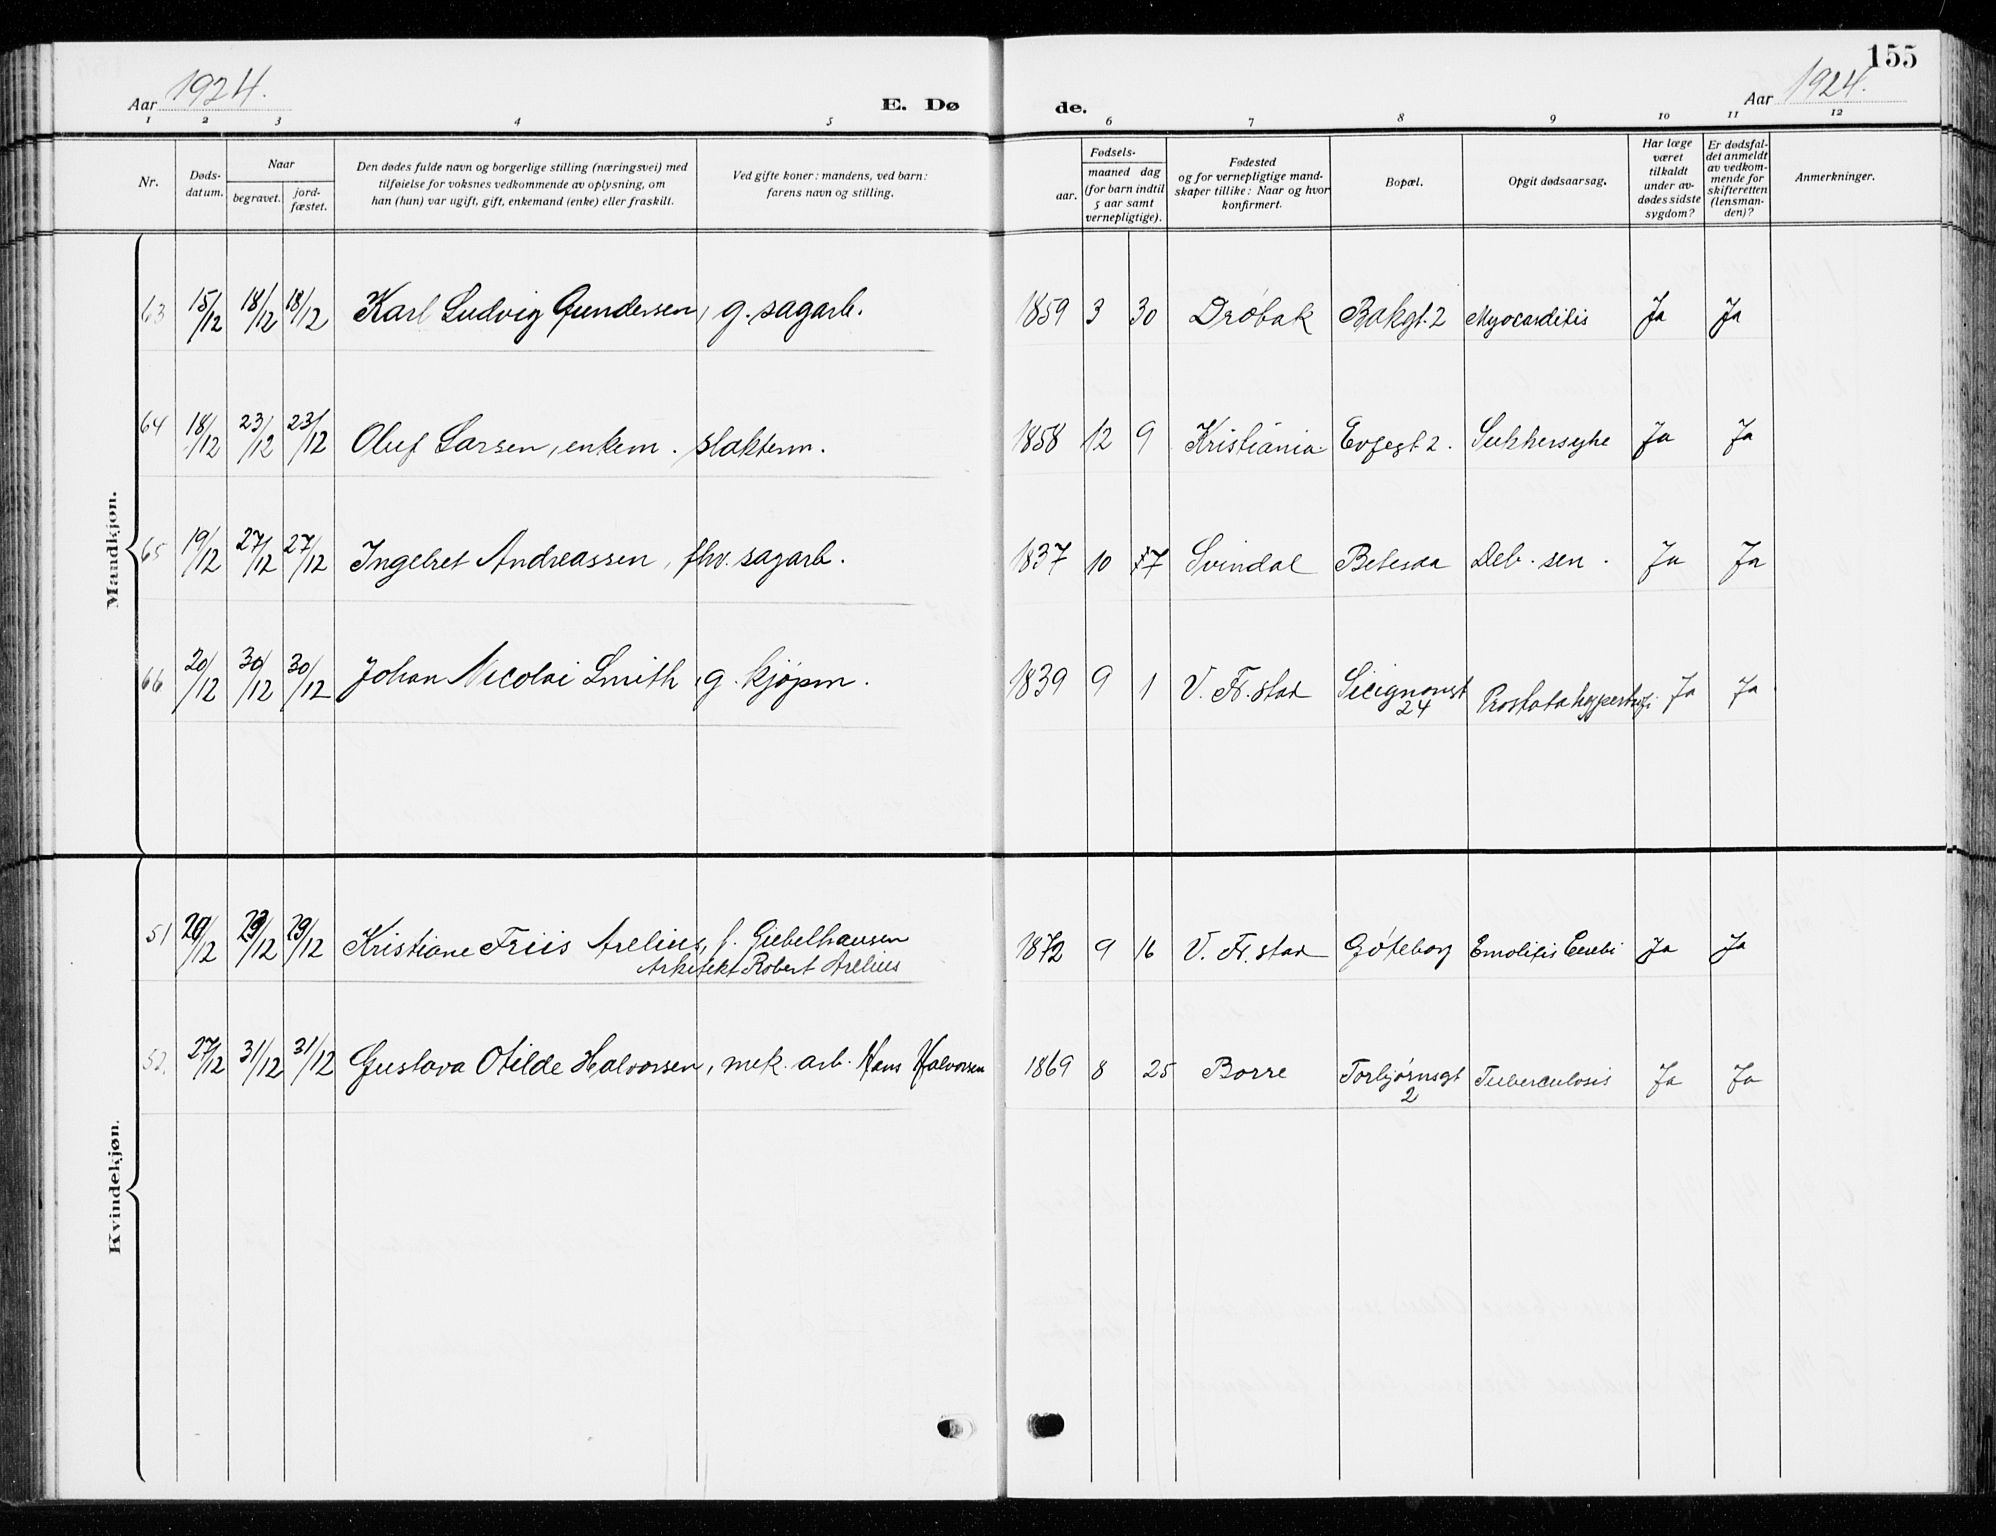 155
Aar 1924.
E. Dø
de.
Aar 1924.
1 2 3 4 5 6 7 8 9 10 11 12
Nr.
Døds-
datum.
Naar
begravet.
jord-
fæstet.
Den dødes fulde navn og borgerlige stilling (næringsvei) med
tilføielse for voksnes vedkommende av oplysning, om
han (hun) var ugift, gift, enkemand (enke) eller fraskilt.
Ved gifte koner: mandens, ved barn:
farens navn og stilling.
Fødsels-
aar.
maaned dag
(for barn indtil
5 aar samt
vernepligtige).
Fødested
og for vernepligtige mand-
skaper tillike: Naar og hvor
konfirmert.
Bopæl.
Opgit dødsaarsag.
Har læge
været
tilkaldt
under av-
dødes sidste
sygdom?
Er dødsfal-
det anmeldt
av vedkom-
mende for
skifteretten
(lensman-
den)?
Anmerkninger.
Mandkjøn.
63 15/12 18/12 18/12 Karl Ludvig Gundersen, g. sagarb. 1859 3 30 Drøbak Bakgt. 2 Myocarditis Ja Ja
64 18/12 23/12 23/12 Oluf Larsen, enkem. slakterm. 1858 12 9 Kristiania Evjegt 2. Sukkersyke Ja Ja
65 19/12 27/12 27/12 Ingebret Andreassen, fhv. sagarb. 1837 10 17 Svindal Betesda Deb. sen. Ja Ja
66 20/12 30/12 30/12 Johan Nicolai Smith, g. kjøpm. 1839 9 1 V. Fr.stad Seiegnonsgt Prostatahypertrofi Ja Ja
24
Kvindekjøn.
51 20/12 29/12 29/12 Kristiane Friis Arelius, f. Giebelhausen 1872 9 16 V. Fr.stad Göteborg Emolitis Cerebi Ja Ja
Arkitekt Robert Arelius
52. 27/12 31/12 31/12 Gustava Otilde Halvorsen, mek. arb. Hans Halvorsen 1869 8 25 Borre Torbjørnsgt Tuberculosis Ja Ja
2